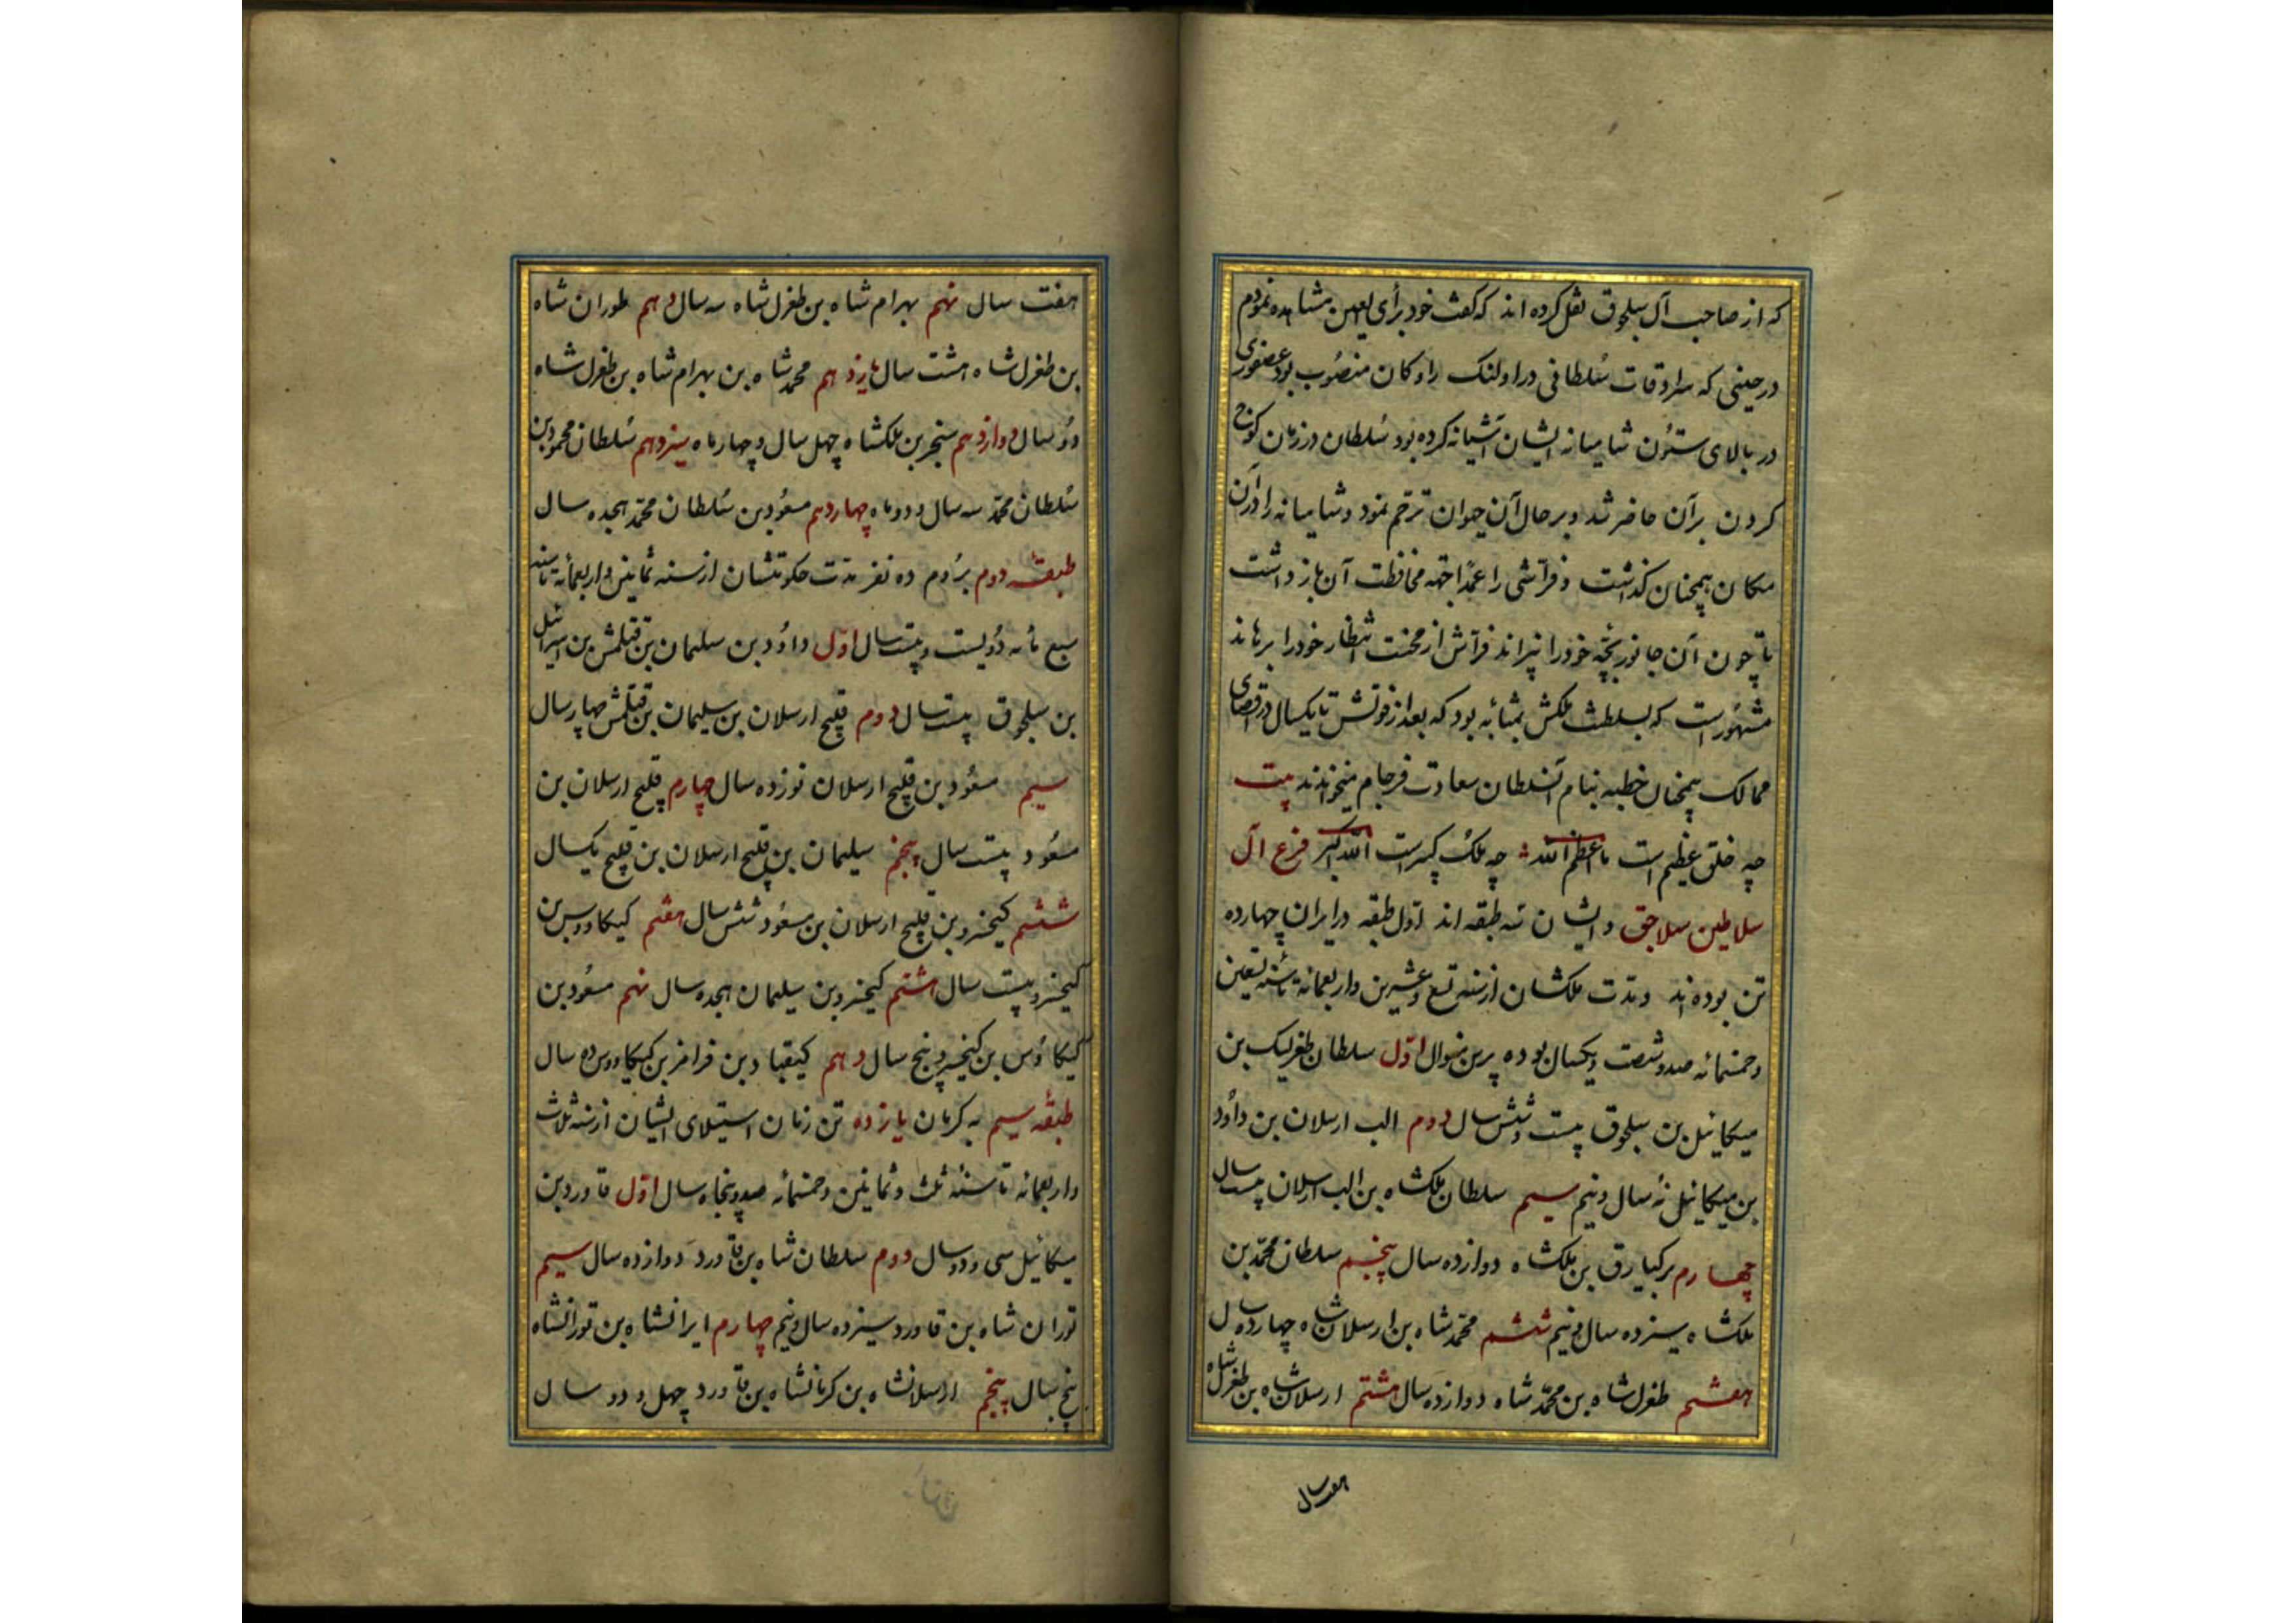 که از صاحب آل سلجوق نقل کرده اند که گفت خود برأی العین مشاهده نمودم
در حینی که سرادقات سُلطانی در اولنک رادکان منصُوب بود عصفوری
در بالای ستوُن شامیانه ایشان آشیانه کرده بود سُلطان در زمان کوچ
کردن برآن حاضر شد و بر حال آن حیوان ترحّم نمود و شامیانه را در آن
مکان همچنان کذاشت و فرّاشی را عمداً جهة محافظت آن بازداشت
تا چون آن جانور بچّه خود را بپراند فرّاش از محنت انتظار خود را برهاند
مشهُور است که بسطت ملکش بمثابه بود که بعد از فوتش تا یکسال در اقصای
ممالک همچنان خطبه بنام آن سُلطان سعادت فرجام میخوندند بیت
چه خلق عظیم است ما اعظم الله چه ملک کبیر است الله اکبر فرع آل
سلاطین سلاجق و ایشان سه طبقه اند اوّل طبقه در ایران چهارده
تن بوده اند و مدّت ملکشان از سنه تسع و عشرین و اربعمائة تا سنه تسعین
و خمسمائه صد و شصت و یکسال بوده برین منوال اوّل سلطان طغرلبیک بن
میکائیل بن سلجوق بیست و شش سال دوم الب ارسلان بن داوُد
بن میکائیل نُه سال و نیم سیم سلطان ملکشاه بن الب ارسلان بیست سال
چهارم برکیارق بن ملکشاه دوازده سال پنجم سلطان محمّد بن
ملکشاه سیزده سال و نیم ششم محمّد شاه بن ارسلان شاه چهارده سال
هفتم طغرل شاه بن محمّد شاه دوازده سال هشتم ارسلان شاه بن طغرل شاه
هفت سال
هفت سال نهم بهرام شاه بن طغرل شاه سه سال دهم طوران شاه
بن طغرل شاه هشت سال یازدهم محمد شاه بن بهرام شاه بن طغرل شاه
دوُ سال دوازدهم سنجر بن ملکشاه چهل سال و چهار ماه سیزدهم سُلطان محمود بن
سُلطان محمّد سه سال و دو ماه چهاردهم مسعوُد بن سُلطان محمّد هجده سال
طبقهٔ دوم برُوم ده نفر مدّت حکومتشان از سنه ثمانین و اربعمائة تا سنه
سبع مائه دُویست و بیست سال اوّل داوُد بن سلیمان بن قتلمش بن اسرائیل
بن سلجوق بیست سال دوم قلیج ارسلان بن سلیمان بن قتلمش چهار سال
سیم مسعوُد بن قلیج ارسلان نوزده سال چهارم قلیج ارسلان بن
مسعُود بیست سال پنجم سلیمان بن قلیج ارسلان بن قلیج یکسال
ششم کیخسرو بن قلیج ارسلان بن مسعوُد شش سال هفتم کیکاووس بن
کیخسرو بیست سال هشتم کیخسرو بن سلیمان هجده سال نهم مسعُود بن
کیکاوُس بن کیخسرو پنج سال دهم کیقباد بن فرامرز بن کیکاووس ده سال
طبقهٔ سیم به کرمان یازده تن زمان استیلای ایشان از سنه ثلاث
و اربعمائه تا سنهٔ ثلث و ثمانین و خمسمائه صد و پنجاه سال اوّل قاورد بن
میکائیل سی و دو سال دوم سلطان شاه بن قاورد دوازده سال سیم
توران شاه بن قاورد سیزده سال و نیم چهارم ایرانشاه بن تورانشاه
پنج سال پنجم ارسلانشاه بن کرمانشاه بن قاورد چهل و دو سال